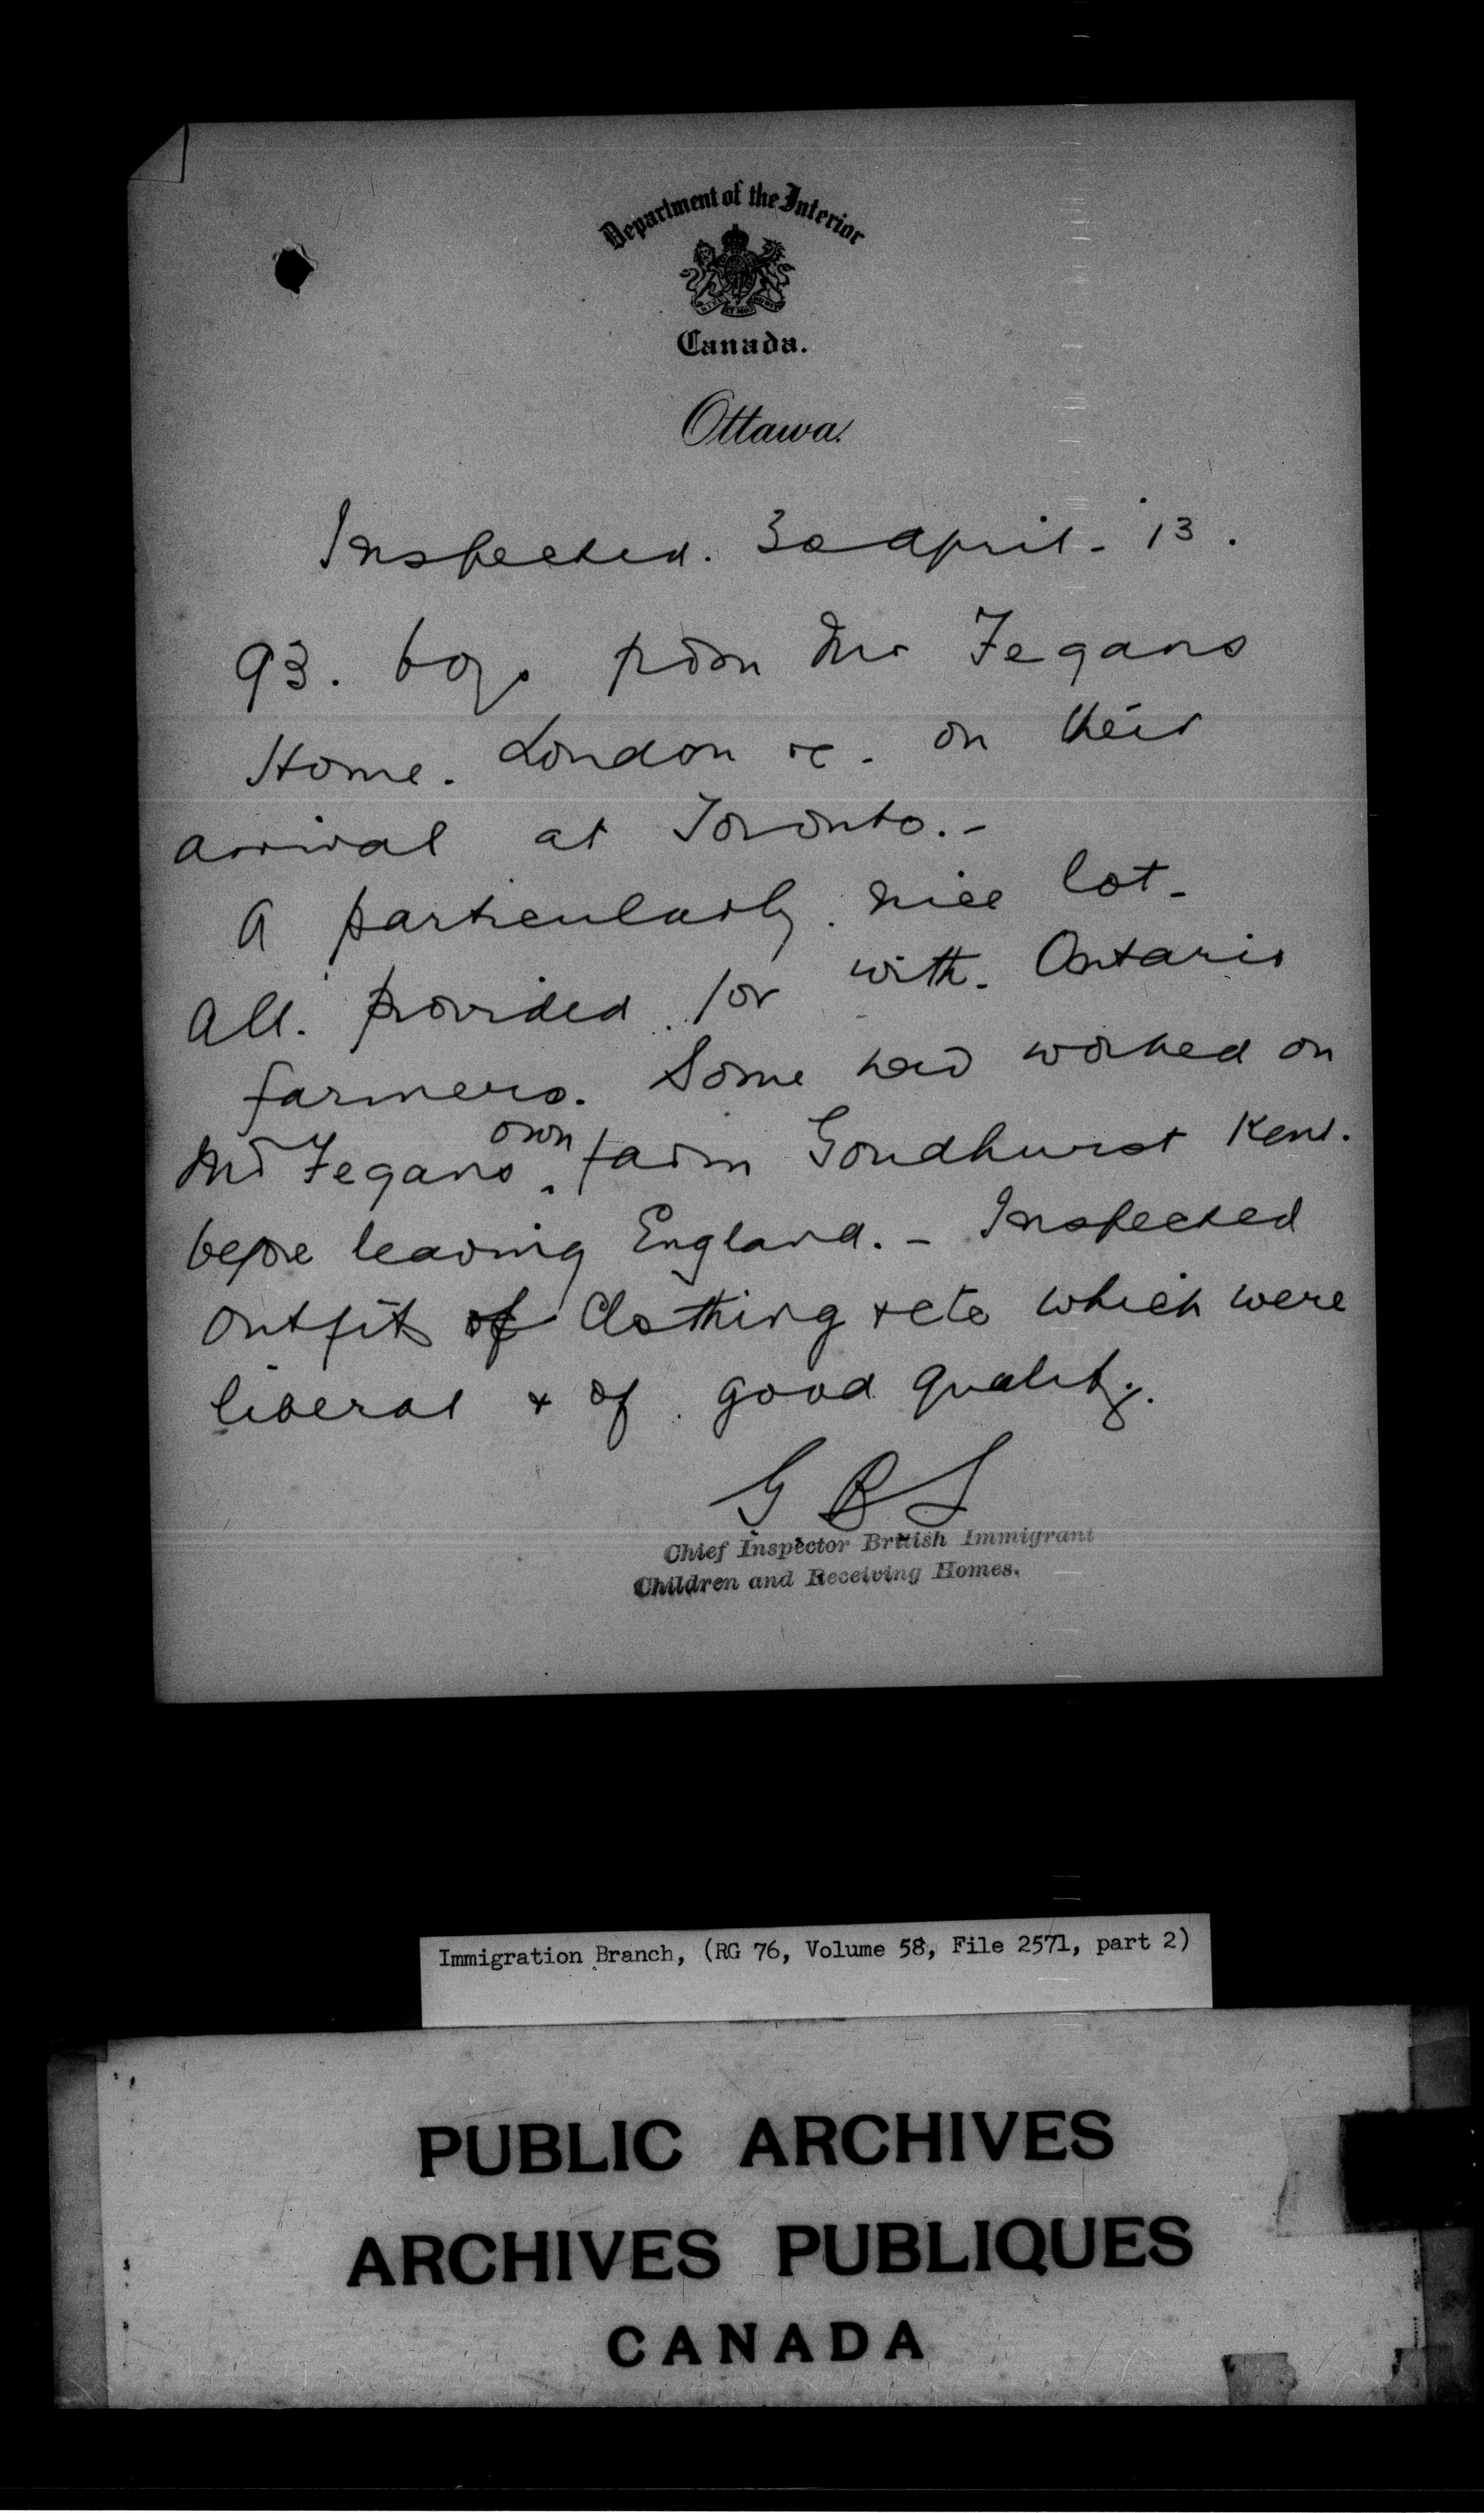 Department of the Interior
Canada.
Ottawa.
Inspected. 30 April - '13.
93. boys from Mr Fegans
Home. London &c. on their
arrival at Toronto. -
A particularly nice lot -
All. provided for with. Ontario
farmers. Some had worked on
Mr Fegans own farm Goudhurst Kent.
before leaving England. - Inspected
outfits of Clothing & etc which were
liberal & of good quality.
G B S
Chief Inspector British Immigrant
Children and Receiving Homes.
Immigration Branch, (RG 76, Volume 58, File 2571, part 2)
PUBLIC ARCHIVES
ARCHIVES PUBLIQUES
CANADA